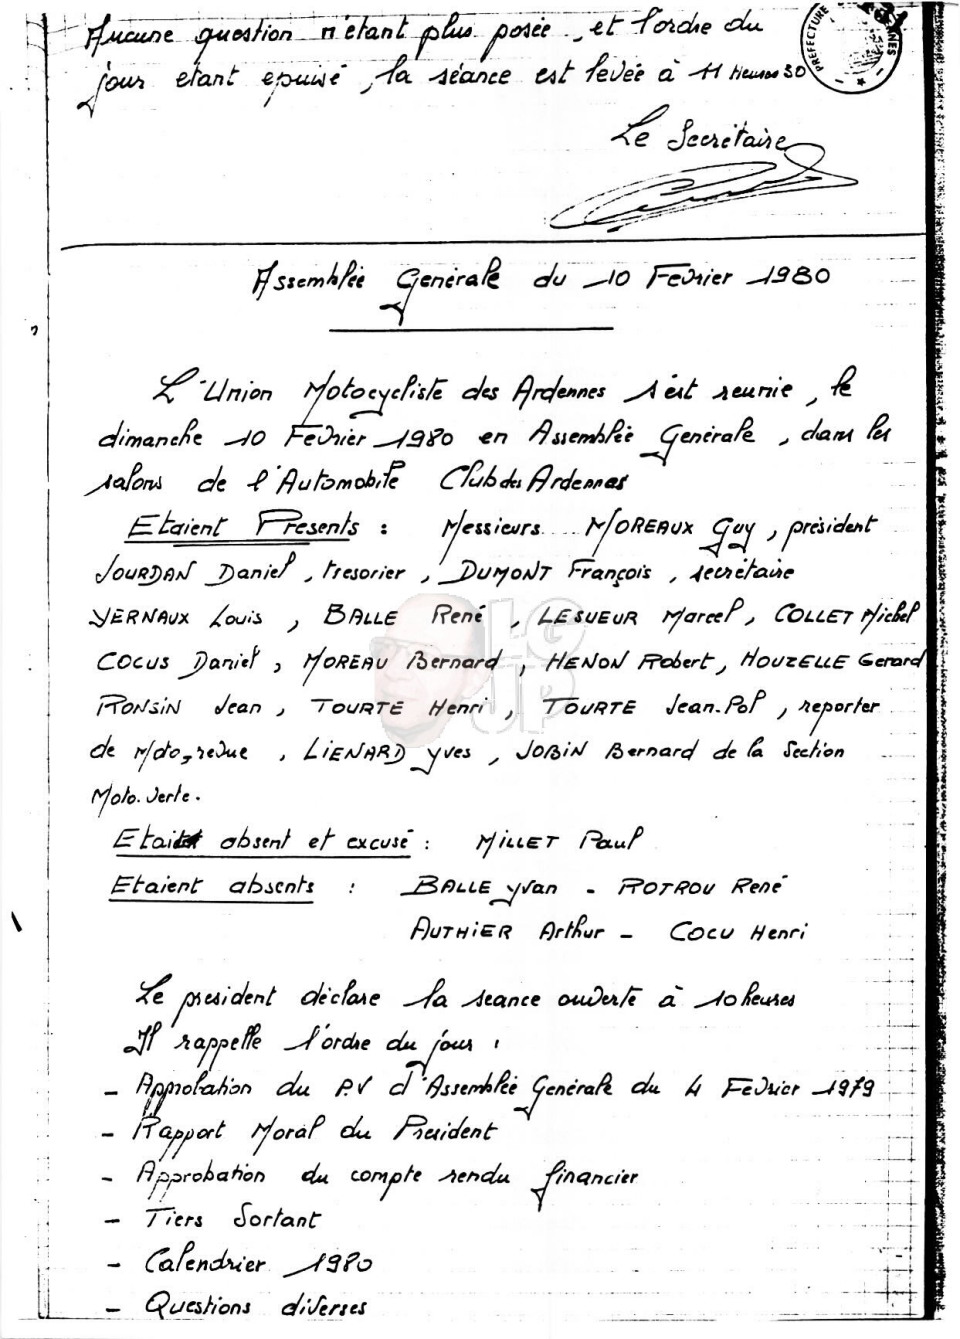 Aucune question n'étant plus posée, et l'ordre du
jour étant épuisé, la séance est levée à 11 Heures 30
PREFECTURE
Le Secrétaire
Assemblée Générale du 10 Fevrier 1980
L'Union Motocycliste des Ardennes s'est reunie, le
dimanche 10 Fevrier 1980 en Assemblée Générale, dans les
salons de l'Automobile Club des Ardennes
Etaient Presents : Messieurs MOREAUX Guy, président
JOURDAN Daniel, tresorier, DUMONT François, secrétaire
YERNAUX Louis, BALLE René, LESUEUR Marcel, COLLET Michel
COCUS Daniel, MOREAU Bernard, HENON Robert, HOUZELLE Gerard
RONSIN Jean, TOURTE Henri, TOURTE Jean.Pol, reporter
de Moto-revue, LIENARD Yves, JOBIN Bernard de la Section
Moto.Verte.
Etait absent et excusé : MILLET Paul
Etaient absents : BALLE Yvan - ROTROU René
AUTHIER Arthur - COCU Henri
Le president déclare la seance ouverte à 10 heures
Il rappelle l'ordre du jour :
- Approbation du P.V d'Assemblée Générale du 4 Fevrier 1979
- Rapport Moral du President
- Approbation du compte rendu financier
- Tiers Sortant
- Calendrier 1980
- Questions diverses
LG
JP